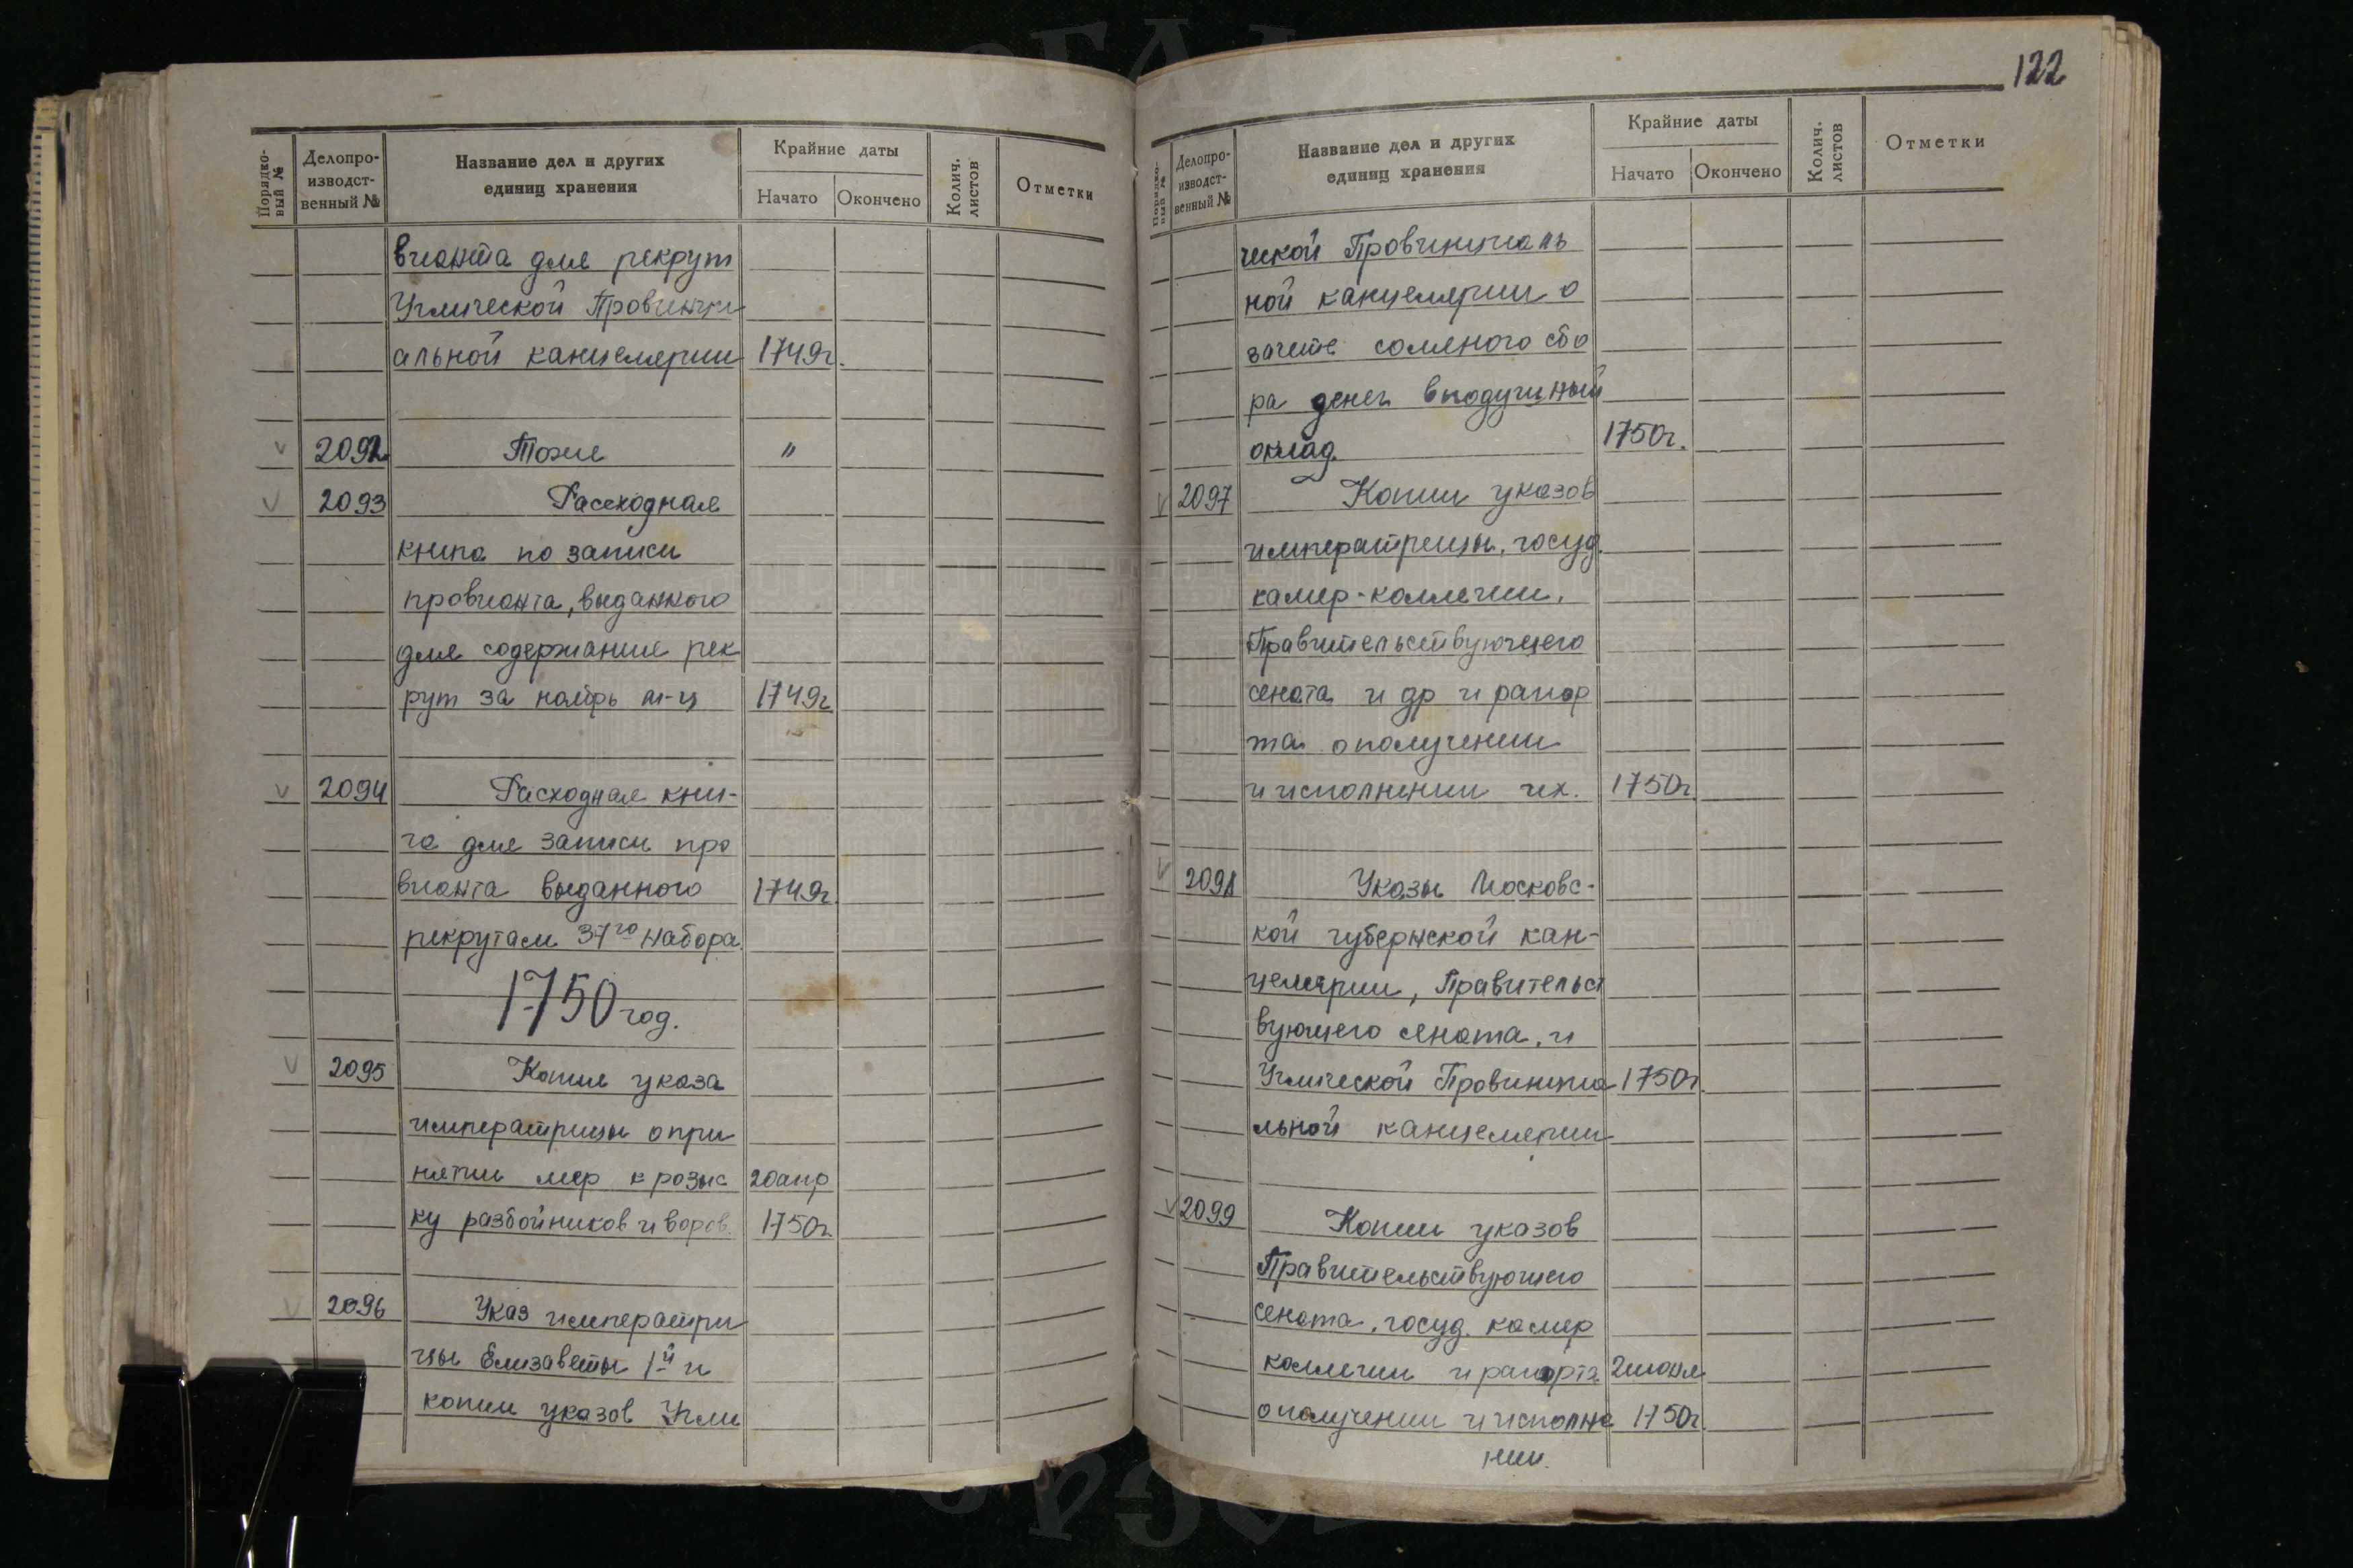 Порядко-
вый №
Делопро-
изводст-
венный №
Название дел и других
единиц хранения
Крайние даты
Начато
Окончено
Колич.
листов
Отметки
вианта для рекрут
Угличской Провинци
альной канцелярии 1749г.
2092 Тоже "
2093 Рассходная
книга по записи
провианта, выданного
для содержание рек
рут за ноябрь м-ц 1749г
2094 Расходная кни-
га для записи про
вианта выданного 1749г.
рекрутам 37го набора.
1750 год.
2095 Копия указа
императрицы о при
нятии мер к розыс 20 апр
ку разбойников и воров. 1750г.
2096 Указ императри
цы Елизаветы 1й и
копии указов Угли
122
Порядко-
вый №
Делопро-
изводст-
венный №
Название дел и других
единиц хранения
Крайние даты
Начато
Окончено
Колич.
листов
Отметки
ческой Провинциаль
ной канцелярии о
зачете соляного сбо
ра денег в подушный
оклад. 1750г.
2097 Копии указов
императрицы, госуд.
камер-коллегии,
Правительствующего
сената и др и рапор
та о получении
и исполнении их. 1750г.
2098 Указы Московс-
кой губернской кан-
целярии, Правительст
вующего сената, и
Угличской Провинциа 1750г.
льной канцелярии
2099 Копии указов
Правительствующего
сената, госуд. камер
коллегии и рапорта 2 июня
о получении и исполне 1750г.
нии.